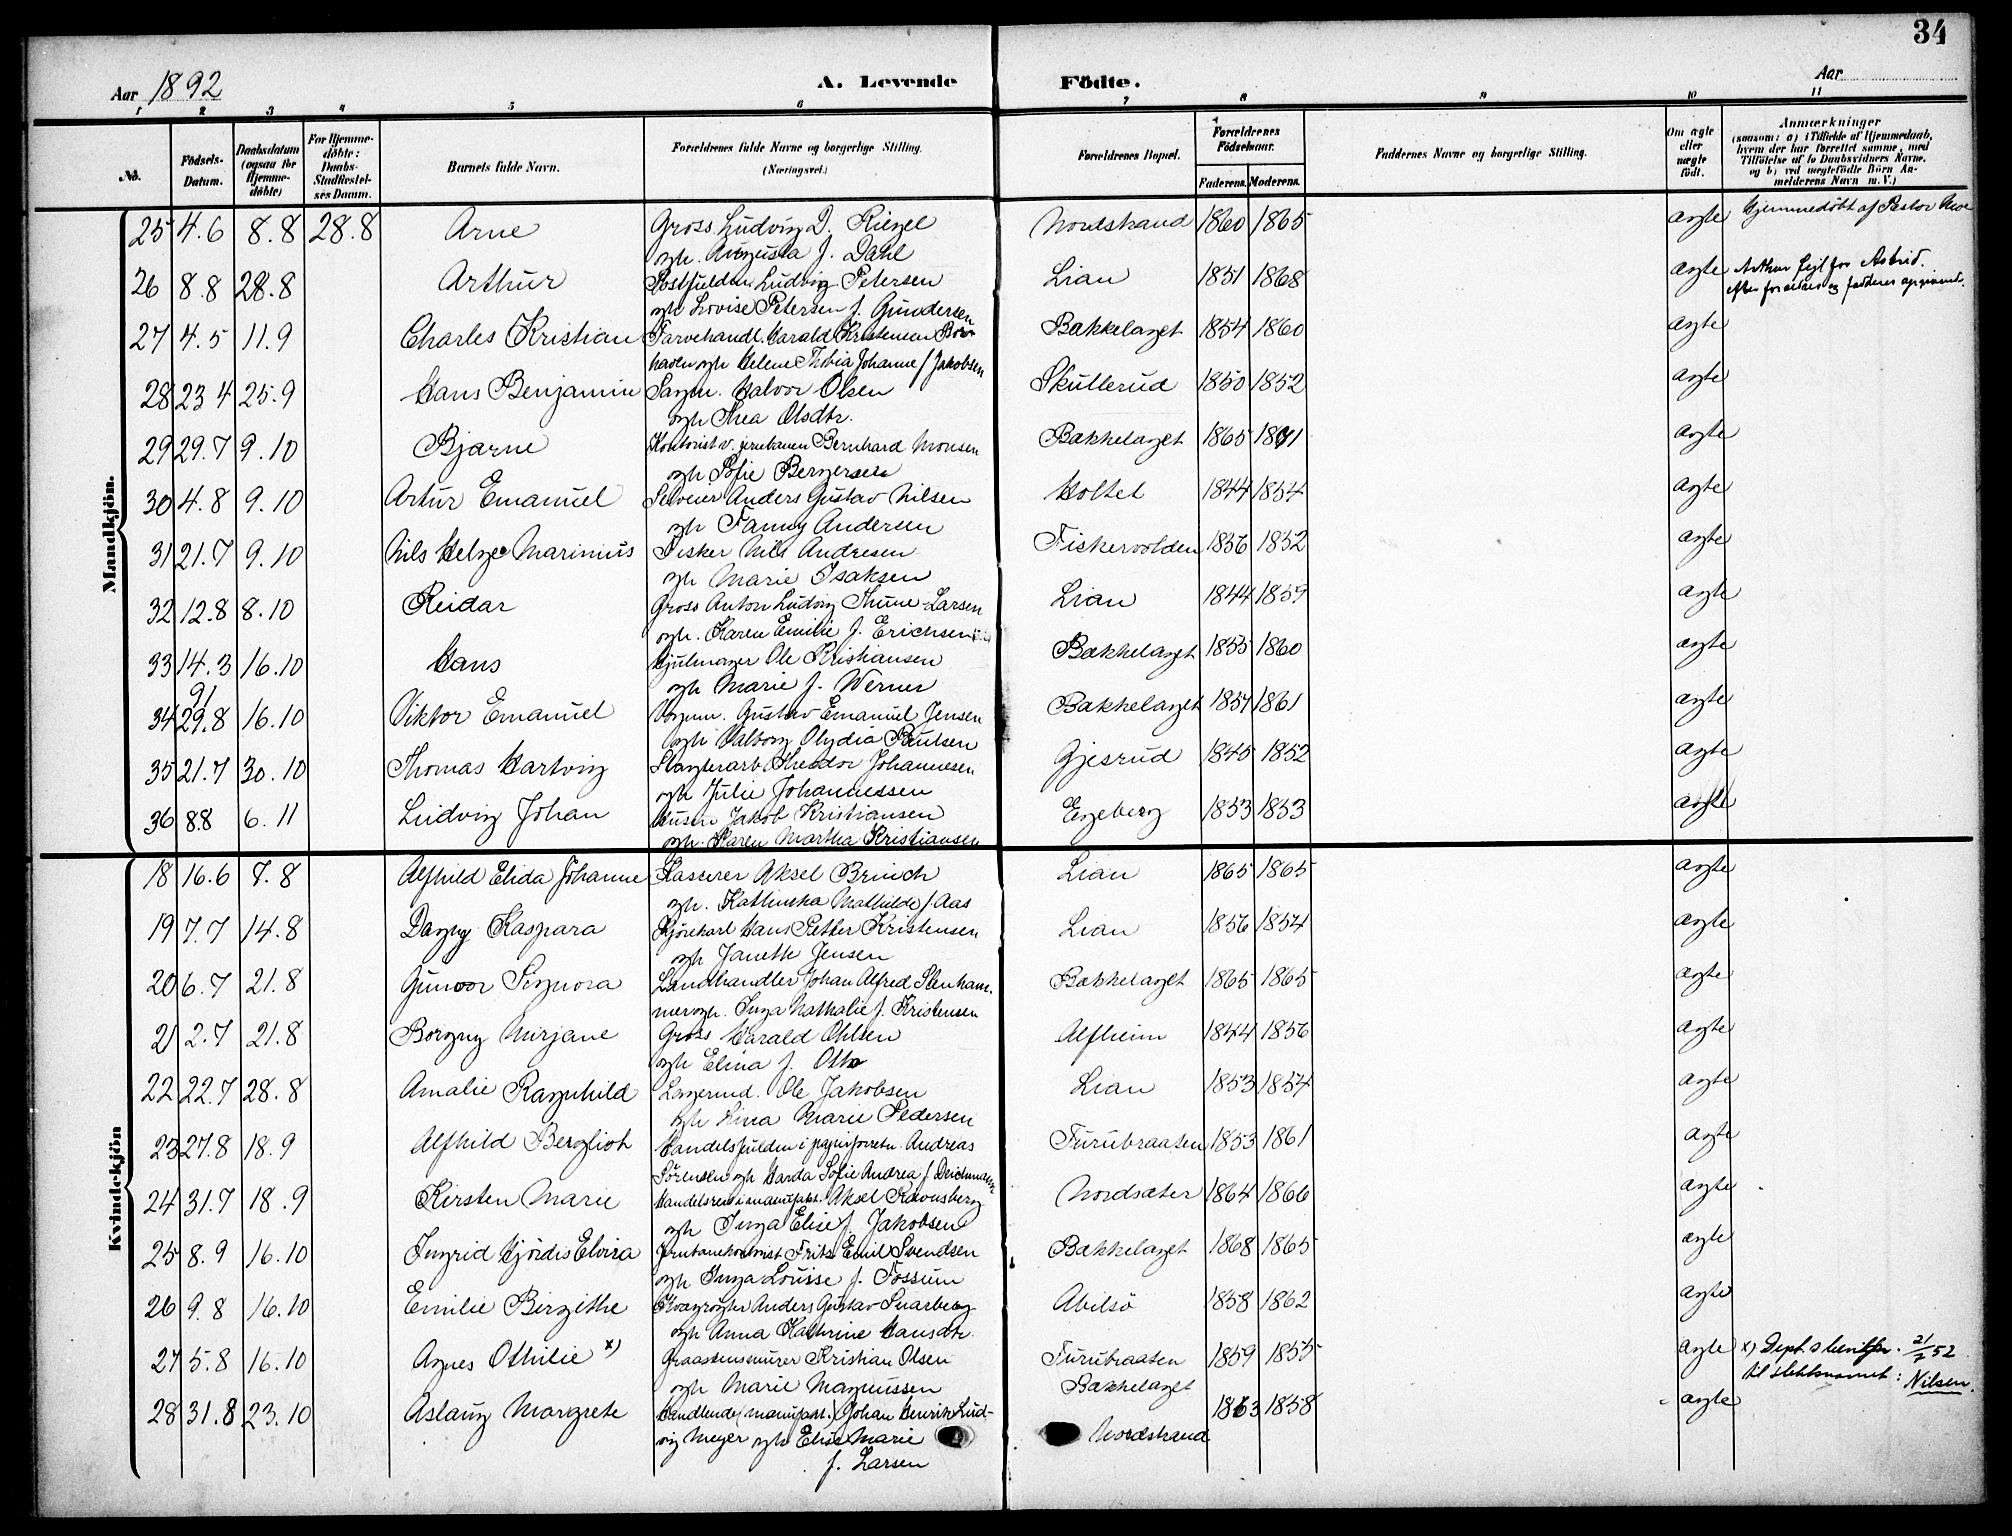 34
Aar 1892
A. Levende Födte.
Aar
1 2 3 4 5 6 7 8 9 10 11
No.
Födsels-Datum.
Daabsdatum (ogsaa for Hjemmedöbte)
For Hjemmedöbte: Daabs-Stadfæstelses Datum.
Barnets fulde Navn.
Forældrenes fulde Navne og borgerlige Stilling. (Næringsvei.)
Forældrenes Bopæl.
Forældrenes Födselsaar.
Faderens. Moderens.
Faddernes Navne og borgerlige Stilling.
Om ægte eller uægte födt.
Anmærkninger
(saasom: a) i Tilfælde af Hjemmedaab,
hvem der har forrettet samme, med
Tilföielse af to Daabsvidners Navne.
og b) ved uægtefödte Börn An-
melderens Navn m. V.)
Mandkjön.
25 4.6 8.8 28.8 Arne Gross. Ludvig D. Riegel Nordstrand 1860 1865 ægte Hjemmedöbt af Pastor Moe
og h. Augusta f. Dahl
26 8.8 28.8 Arthur Postfuldm. Ludvig Petersen Lian 1851 1868 ægte Arthur fejl for Astrid.
og h Lovise Petersen f. Gundersen efter forældres og fadderes opgivende.
27 4.5 11.9 Charles Kristian Farvehandl. Harald Kristensen Bakkelaget 1854 1860 ægte
haven og h Helene Tobia Johanne f Jakobsen
28 23 4 25.9 Hans Benjamin Sagm. Halvor Olsen Skullerud 1850 1852 ægte
og h Thea Olsdtr.
29 29.7 9.10 Bjarne Kontorist v. jernbanen Bernhard Monsen Bakkelaget 1865 1871 ægte
og h Sofie Bergersen
30 4.8 9.10 Artur Emanuel Anders Gustav Nilsen Holtet 1844 1854 ægte
og h Fanny Andersen
31 21.7 9.10 Nils Helge Marinius Fisker Nils Andresen Fiskervolden 1856 1852 ægte
og h Marie Isaksen
32 12.8 8.10 Reidar Gross Anton Ludvig Thune-Larsen Lian 1844 1859 ægte
og h. Karen Emilie f. Erichsen
33 14.3 91 16.10 Hans Hjulmager Ole Kristiansen Bakkelaget 1855 1860 ægte
og h Marie f. Werner
34 29.8 16.10 Viktor Emanuel Vognm. Gustav Emanuel Jensen Bakkelaget 1857 1861 ægte
og h Valborg Olydia Paulsen
35 21.7 30.10 Thomas Hartvig Slagterarb. Theodor Johannesen Gjesrud 1845 1852 ægte
og h Julie Johannessen
36 8.8 6.11 Ludvig Johan Husm Jakob Kristiansen Egeberg 1853 1853 ægte
og h. Karen Martha Kristiansen
Kvindekjön
18 16.6 7.8 Alfhild Elida Johanne Kasserer Aksel Brinch Lian 1865 1865 ægte
og h. Kathinka Mathilde f. Aas
19 7.7 14.8 Dagny Kaspara Kjörekarl Hans Petter Kristensen Lian 1856 1854 ægte
og h Janette Jensen
20 6.7 21.8 Gunvor Signora Landhandler Johan Alfred Stenham- Bakkelaget 1865 1865 ægte
mer og h. Inga Nathalie f. Kristensen
21 2.7 21.8 Borgny Mirjane Gross Harald Ohlsen Alfheim 1844 1856 ægte
og h Elina f. Otto
22 22.7 28.8 Amalie Ragnhild Lagermd. Ole Jakobsen Lian 1853 1854 ægte
og h Lina Marie Pedersen
23 27.8 18.9 Alfhild Bergliot Handelsfuldm i papirforretn. Andreas Furubraaten 1853 1861 ægte
Sörensen og h Harda Sofie Andrea f Deichmann
24 31.7 18.9 Kirsten Marie Handelsreis i manufakt. Aksel Ravnsberg Nordsæter 1864 1866 ægte
og h Inga Elise f. Jakobsen
25 8.9 16.10 Ingrid Hjördis Elvira Jernbanekontorist Fritz Emil Svendsen Bakkelaget 1868 1865 ægte
og h Inga Lousse f. Fossum
26 9.8 16.10 Emilie Birgithe Kvægrögter Anders Gustav Snarberg Abilsö 1858 1862 ægte
og h Anna Kathrine Hansdtr.
27 5.8 16.10 Agnes Othilie x) Graastensmurer Kristian Olsen Furubraaten 1859 1855 ægte x) Dept.s bevillgn. 21/7 52
og h Marie Magnussen Bakkelaget til slektsnavnet: Nilsen.
28 31.8 23.10 Aslaug Margrete Handlende (manufakt.) Johan Henrik Lud- 1863 1858 ægte
vig Meyer og h Elise Marie Nordstrand
f. Larsen